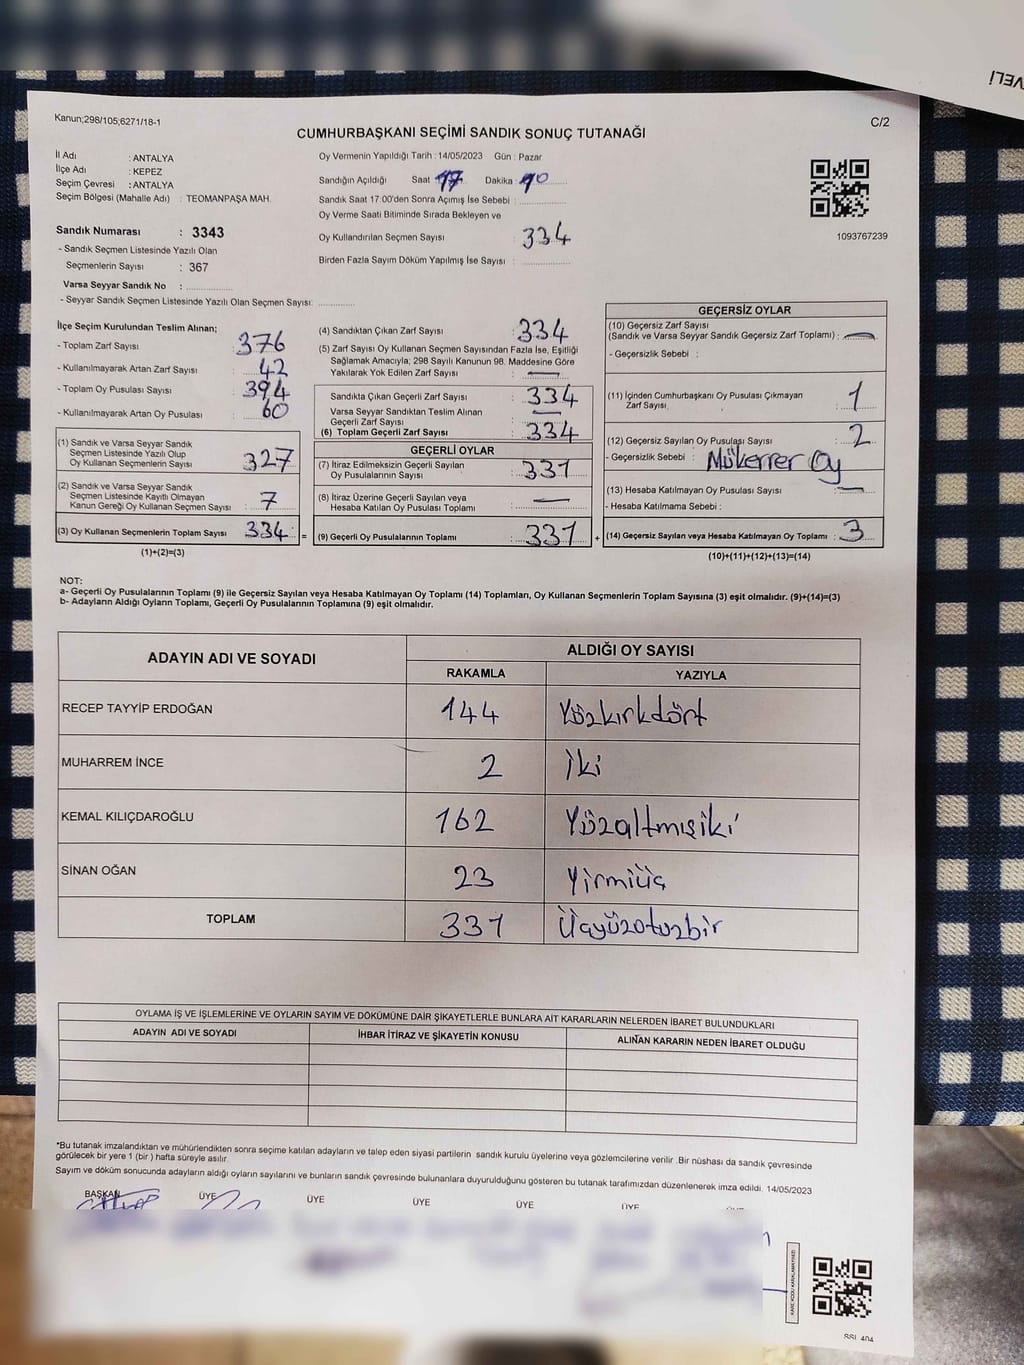 VELİ
Kanun;298/105;6271/18-1
C/2
CUMHURBAŞKANI SEÇİMİ SANDIK SONUÇ TUTANAĞI
İl Adı : ANTALYA
İlçe Adı : KEPEZ
Seçim Çevresi : ANTALYA
Seçim Bölgesi (Mahalle Adı) : TEOMANPAŞA MAH.
Oy Vermenin Yapıldığı Tarih : 14/05/2023 Gün : Pazar
Sandığın Açıldığı Saat 17 Dakika :
Sandık Saat 17.00'den Sonra Açımış İse Sebebi :
Oy Verme Saati Bitiminde Sırada Bekleyen ve
Oy Kullandırılan Seçmen Sayısı : 334
Birden Fazla Sayım Döküm Yapılmış İse Sayısı :
1093767239
Sandık Numarası : 3343
- Sandık Seçmen Listesinde Yazılı Olan
Seçmenlerin Sayısı : 367
Varsa Seyyar Sandık No :
- Seyyar Sandık Seçmen Listesinde Yazılı Olan Seçmen Sayısı:
İlçe Seçim Kurulundan Teslim Alınan;
- Toplam Zarf Sayısı : 376
- Kullanılmayarak Artan Zarf Sayısı : 42
- Toplam Oy Pusulası Sayısı : 394
- Kullanılmayarak Artan Oy Pusulası : 60
(1) Sandık ve Varsa Seyyar Sandık
Seçmen Listesinde Yazılı Olup
Oy Kullanan Seçmenlerin Sayısı : 327
(2) Sandık ve Varsa Seyyar Sandık
Seçmen Listesinde Kayıtlı Olmayan
Kanun Gereği Oy Kullanan Seçmen Sayısı : 7
(3) Oy Kullanan Seçmenlerin Toplam Sayısı : 334 =
(1)+(2)=(3)
(4) Sandıktan Çıkan Zarf Sayısı : 334
(5) Zarf Sayısı Oy Kullanan Seçmen Sayısından Fazla İse, Eşitliği
Sağlamak Amacıyla; 298 Sayılı Kanunun 98. Maddesine Göre
Yakılarak Yok Edilen Zarf Sayısı : —
Sandıkta Çıkan Geçerli Zarf Sayısı : 334
Varsa Seyyar Sandıktan Teslim Alınan
Geçerli Zarf Sayısı : —
(6) Toplam Geçerli Zarf Sayısı : 334
GEÇERLİ OYLAR
(7) İtiraz Edilmeksizin Geçerli Sayılan
Oy Pusulalarının Toplamı : 331
(8) İtiraz Üzerine Geçerli Sayılan veya
Hesaba Katılan Oy Pusulası Toplamı : —
(9) Geçerli Oy Pusulalarının Toplamı : 331 +
GEÇERSİZ OYLAR
(10) Geçersiz Zarf Sayısı
(Sandık ve Varsa Seyyar Sandık Geçersiz Zarf Toplamı) : —
- Geçersizlik Sebebi :
(11) İçinden Cumhurbaşkanı Oy Pusulası Çıkmayan
Zarf Sayısı : 1
(12) Geçersiz Sayılan Oy Pusulası Sayısı : 2
- Geçersizlik Sebebi : Mükerrer Oy
(13) Hesaba Katılmayan Oy Pusulası Sayısı : —
- Hesaba Katılmama Sebebi :
(14) Geçersiz Sayılan veya Hesaba Katılmayan Oy Toplamı : 3
(10)+(11)+(12)+(13)=(14)
NOT:
a- Geçerli Oy Pusulalarının Toplamı (9) ile Geçersiz Sayılan veya Hesaba Katılmayan Oy Toplamı (14) Toplamları, Oy Kullanan Seçmenlerin Toplam Sayısına (3) eşit olmalıdır. (9)+(14)=(3)
b- Adayların Aldığı Oyların Toplamı, Geçerli Oy Pusulalarının Toplamına (9) eşit olmalıdır.
ADAYIN ADI VE SOYADI ALDIĞI OY SAYISI
RAKAMLA YAZIYLA
RECEP TAYYİP ERDOĞAN 144 Yüzkırkdört
MUHARREM İNCE 2 İki
KEMAL KILIÇDAROĞLU 162 Yüzaltmışiki
SİNAN OĞAN 23 Yirmiüç
TOPLAM 331 Üçyüzotuzbir
OYLAMA İŞ VE İŞLEMLERİNE VE OYLARIN SAYIM VE DÖKÜMÜNE DAİR ŞİKAYETLERLE BUNLARA AİT KARARLARIN NELERDEN İBARET BULUNDUKLARI
ADAYIN ADI VE SOYADI İHBAR İTİRAZ VE ŞİKAYETİN KONUSU ALINAN KARARIN NEDEN İBARET OLDUĞU
*Bu tutanak imzalandıktan ve mühürlendikten sonra seçime katılan adayların ve talep eden siyasi partilerin sandık kurulu üyelerine veya gözlemcilerine verilir .Bir nüshası da sandık çevresinde
görülecek bir yere 1 (bir ) hafta süreyle asılır.
Sayım ve döküm sonucunda adayların aldığı oyların sayılarını ve bunların sandık çevresinde bulunanlara duyurulduğunu gösteren bu tutanak tarafımızdan düzenlenerek imza edildi. 14/05/2023
BAŞKAN ÜYE ÜYE ÜYE ÜYE ÜYE